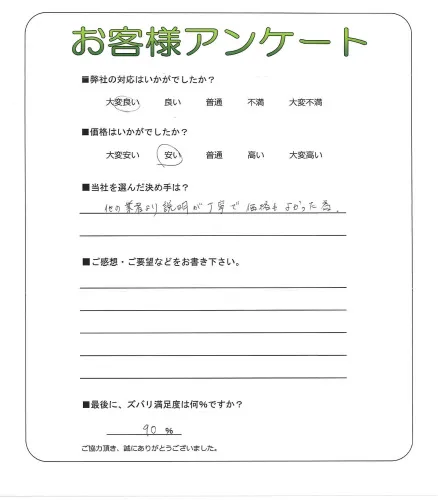 お客様アンケート
■弊社の対応はいかがでしたか?
大変良い 良い 普通 不満 大変不満
■価格はいかがでしたか?
大変安い 安い 普通 高い 大変高い
■当社を選んだ決め手は?
他の業者より説明が丁寧で価格もよかった為。
■ご感想・ご要望などをお書き下さい。
■最後に、ズバリ満足度は何%ですか?
90 %
ご協力頂き、誠にありがとうございました。